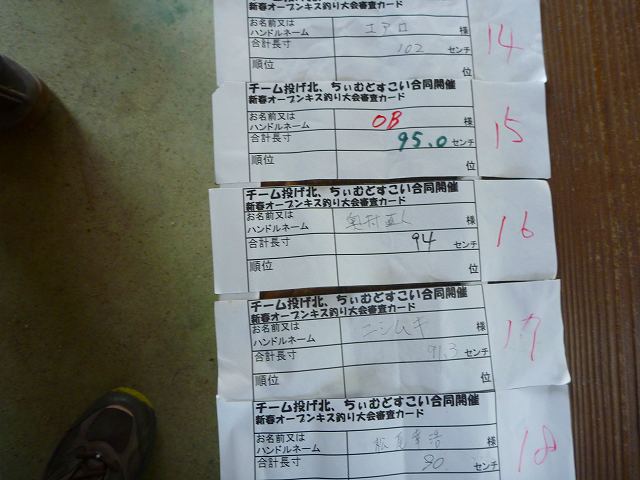 新春オープンキス釣り大会審査カード
お名前又は
ハンドルネーム エアロ 様
合計長寸 102 センチ
順位 位
14
チーム投げ北、ちぃむどすこい合同開催
新春オープンキス釣り大会審査カード
お名前又は
ハンドルネーム OB 様
合計長寸 95.0 センチ
順位 位
15
チーム投げ北、ちぃむどすこい合同開催
新春オープンキス釣り大会審査カード
お名前又は
ハンドルネーム 奥村 様
合計長寸 94 センチ
順位 位
16
チーム投げ北、ちぃむどすこい合同開催
新春オープンキス釣り大会審査カード
お名前又は
ハンドルネーム ニシムキ 様
合計長寸 91.3 センチ
順位 位
17
チーム投げ北、ちぃむどすこい合同開催
新春オープンキス釣り大会審査カード
お名前又は
ハンドルネーム 様
合計長寸 90 センチ
18